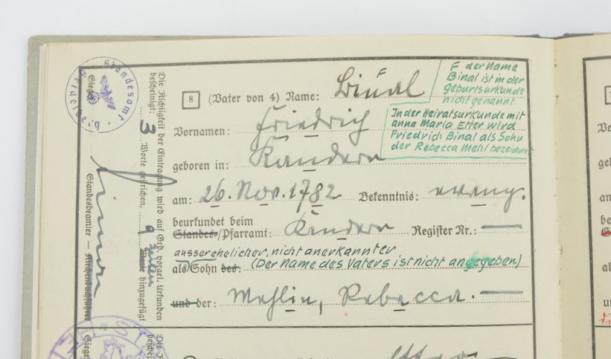 F der Name
Binal ist in der
Geburtsurkunde
nicht genannt.
8 (Vater von 4) Name: Binal
In der Heiratsurkunde mit
Anna Maria Etter wird
Friedrich Binal als Sohn
der Rebecca Mehl bezeichnet
Vornamen: Friedrich
geboren in: Kandern
am: 26. Nov. 1782 Bekenntnis: evang.
beurkundet beim
Standes-/Pfarramt: Kandern Register Nr.: —
ausserehelicher, nicht anerkannter
als Sohn des: (Der Name des Vaters ist nicht angegeben)
und der: Mehlin, Rebecca. —
Die Richtigkeit der Eintragung wird auf Grd. vorgel. Urkunden
bescheinigt:
3 Worte gestrichen, 9 Zeilen hinzugefügt
Siegel
Standesbeamter — Kirchenbuchführer
Standesamt